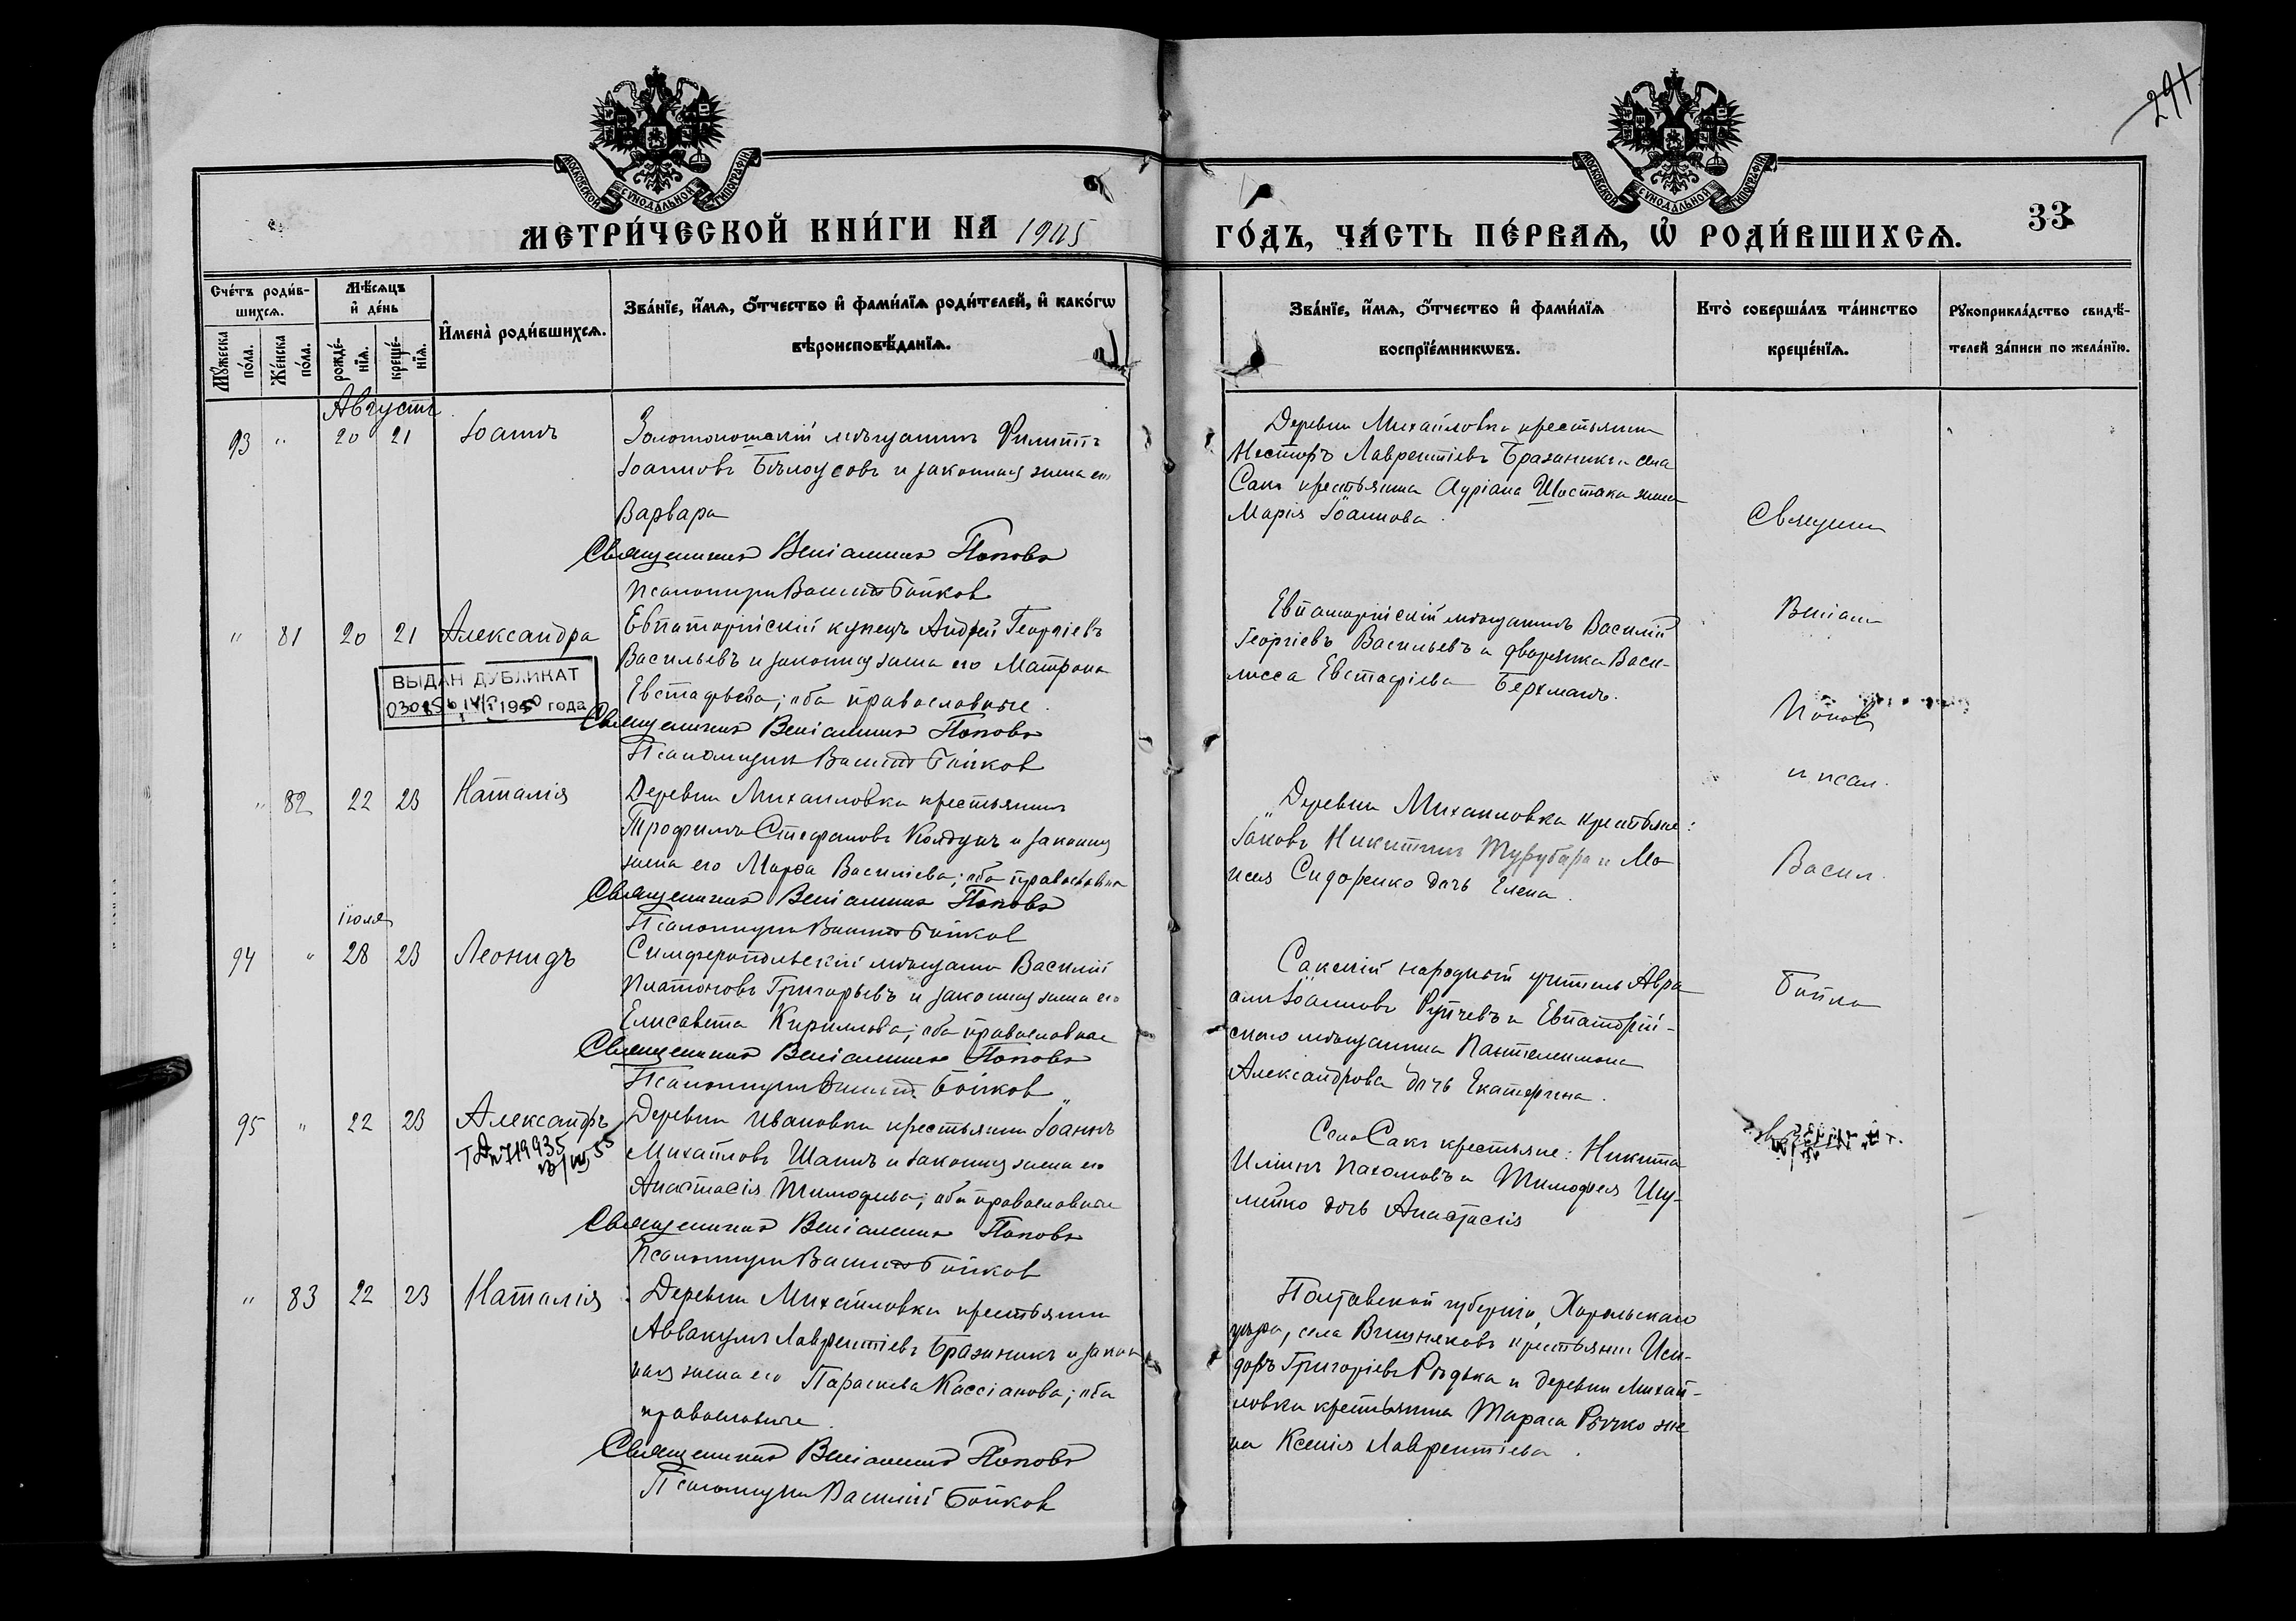 291
МОСКОВСКОЙ СѴНОДАЛЬНОЙ ТИПОГРАФІИ
МОСКОВСКОЙ СѴНОДАЛЬНОЙ ТИПОГРАФІИ
МЕТРИ́ЧЕСКОЙ КНИ́ГИ НА 1905
ГО́ДЪ, ЧА́СТЬ ПЕ́РВАЯ, Ѡ РОДИ́ВШИХСЯ.
33
Сче́тъ роди́в-
шихся.
Мꙋ́жеска по́ла.
Же́нска по́ла.
Мѣ́сяцъ
и де́нь
рожде́-
нія.
креще́-
нія.
Имена̀ роди́вшихся.
Зва́ніе, и́мя, о́тчество и фами́лія роди́телей, и како́гѡ
вѣроисповѣ́данія.
Зва́ніе, и́мя, о́тчество и фами́лія
воспріе́мникѡвъ.
Кто̀ соверша́лъ та́инство
креще́нія.
Рꙋкоприкла́дство свидѣ́-
телей за́писи по жела́нію.
Августъ
93 " 20 21 Іоаннъ
Золотоношскій мѣщанинъ Филиппъ
Іоанновъ Бѣлоусовъ и законная жена его
Варвара
Священникъ Веніаминъ Поповъ
Псаломщикъ Василій Бойков
Деревни Михайловки крестьянинъ
Несторъ Лаврентіевъ Бражникъ и села
Саки крестьянина Адріана Шостака жена
Марія Іоаннова.
" 81 20 21 Александра
Евпаторійскій купецъ Андрей Георгіевъ
Васильевъ и законная жена его Матрона
Евстафьева; оба православные.
Священникъ Веніаминъ Поповъ
Псаломщикъ Василій Бойков
ВЫДАН ДУБЛИКАТ
1950 года
Евпаторійскій мѣщанинъ Василій
Георгіевъ Васильевъ и дворянка Васи-
лисса Евстафіева Берхманъ.
" 82 22 23 Наталія
Деревни Михайловки крестьянинъ
Трофимъ Стефановъ Колдунъ и законная
жена его Марфа Василіева; оба православные
Священникъ Веніаминъ Поповъ
Псаломщикъ Василій Бойков
Деревни Михайловки крестьяне:
Іаковъ Никитинъ Турубара и Мо-
исея Сидоренко дочь Елена.
Іюля
94 " 28 23 Леонидъ
Симферопольскій мѣщанинъ Василій
Платоновъ Григорьевъ и законная жена его
Елисавета Кириллова; оба православные
Священникъ Веніаминъ Поповъ
Псаломщикъ Василій Бойков
Сакскій народный учитель Авра-
амъ Іоанновъ Рупчевъ и Евпаторій-
скаго мѣщанина Пантелеимона
Александрова дочь Екатерина.
95 " 22 23 Александръ
719935
Деревни Ивановки крестьянинъ Іоаннъ
Михайловъ Шамъ и законная жена его
Анастасія Тимофеева; оба православные
Священникъ Веніаминъ Поповъ
Псаломщикъ Василій Бойков
Села Саки крестьяне: Никита
Иліинъ Пахомовъ и Тимофея Шу-
лейко дочь Анастасія
" 83 22 23 Наталія
Деревни Михайловки крестьянинъ
Аввакумъ Лаврентіевъ Бражникъ и закон-
ная жена его Параскева Кассіанова; оба
православные.
Священникъ Веніаминъ Поповъ
Псаломщикъ Василій Бойков
Полтавской губерніи, Хорольскаго
уѣзда, села Вишняковъ крестьянинъ Иси-
доръ Григоріевъ Рѣдька и деревни Михай-
ловки крестьянина Тараса Рѣчко же-
на Ксенія Лаврентіева.
Священн
Веніам
Поповъ
и псал.
Васил.
Бойко